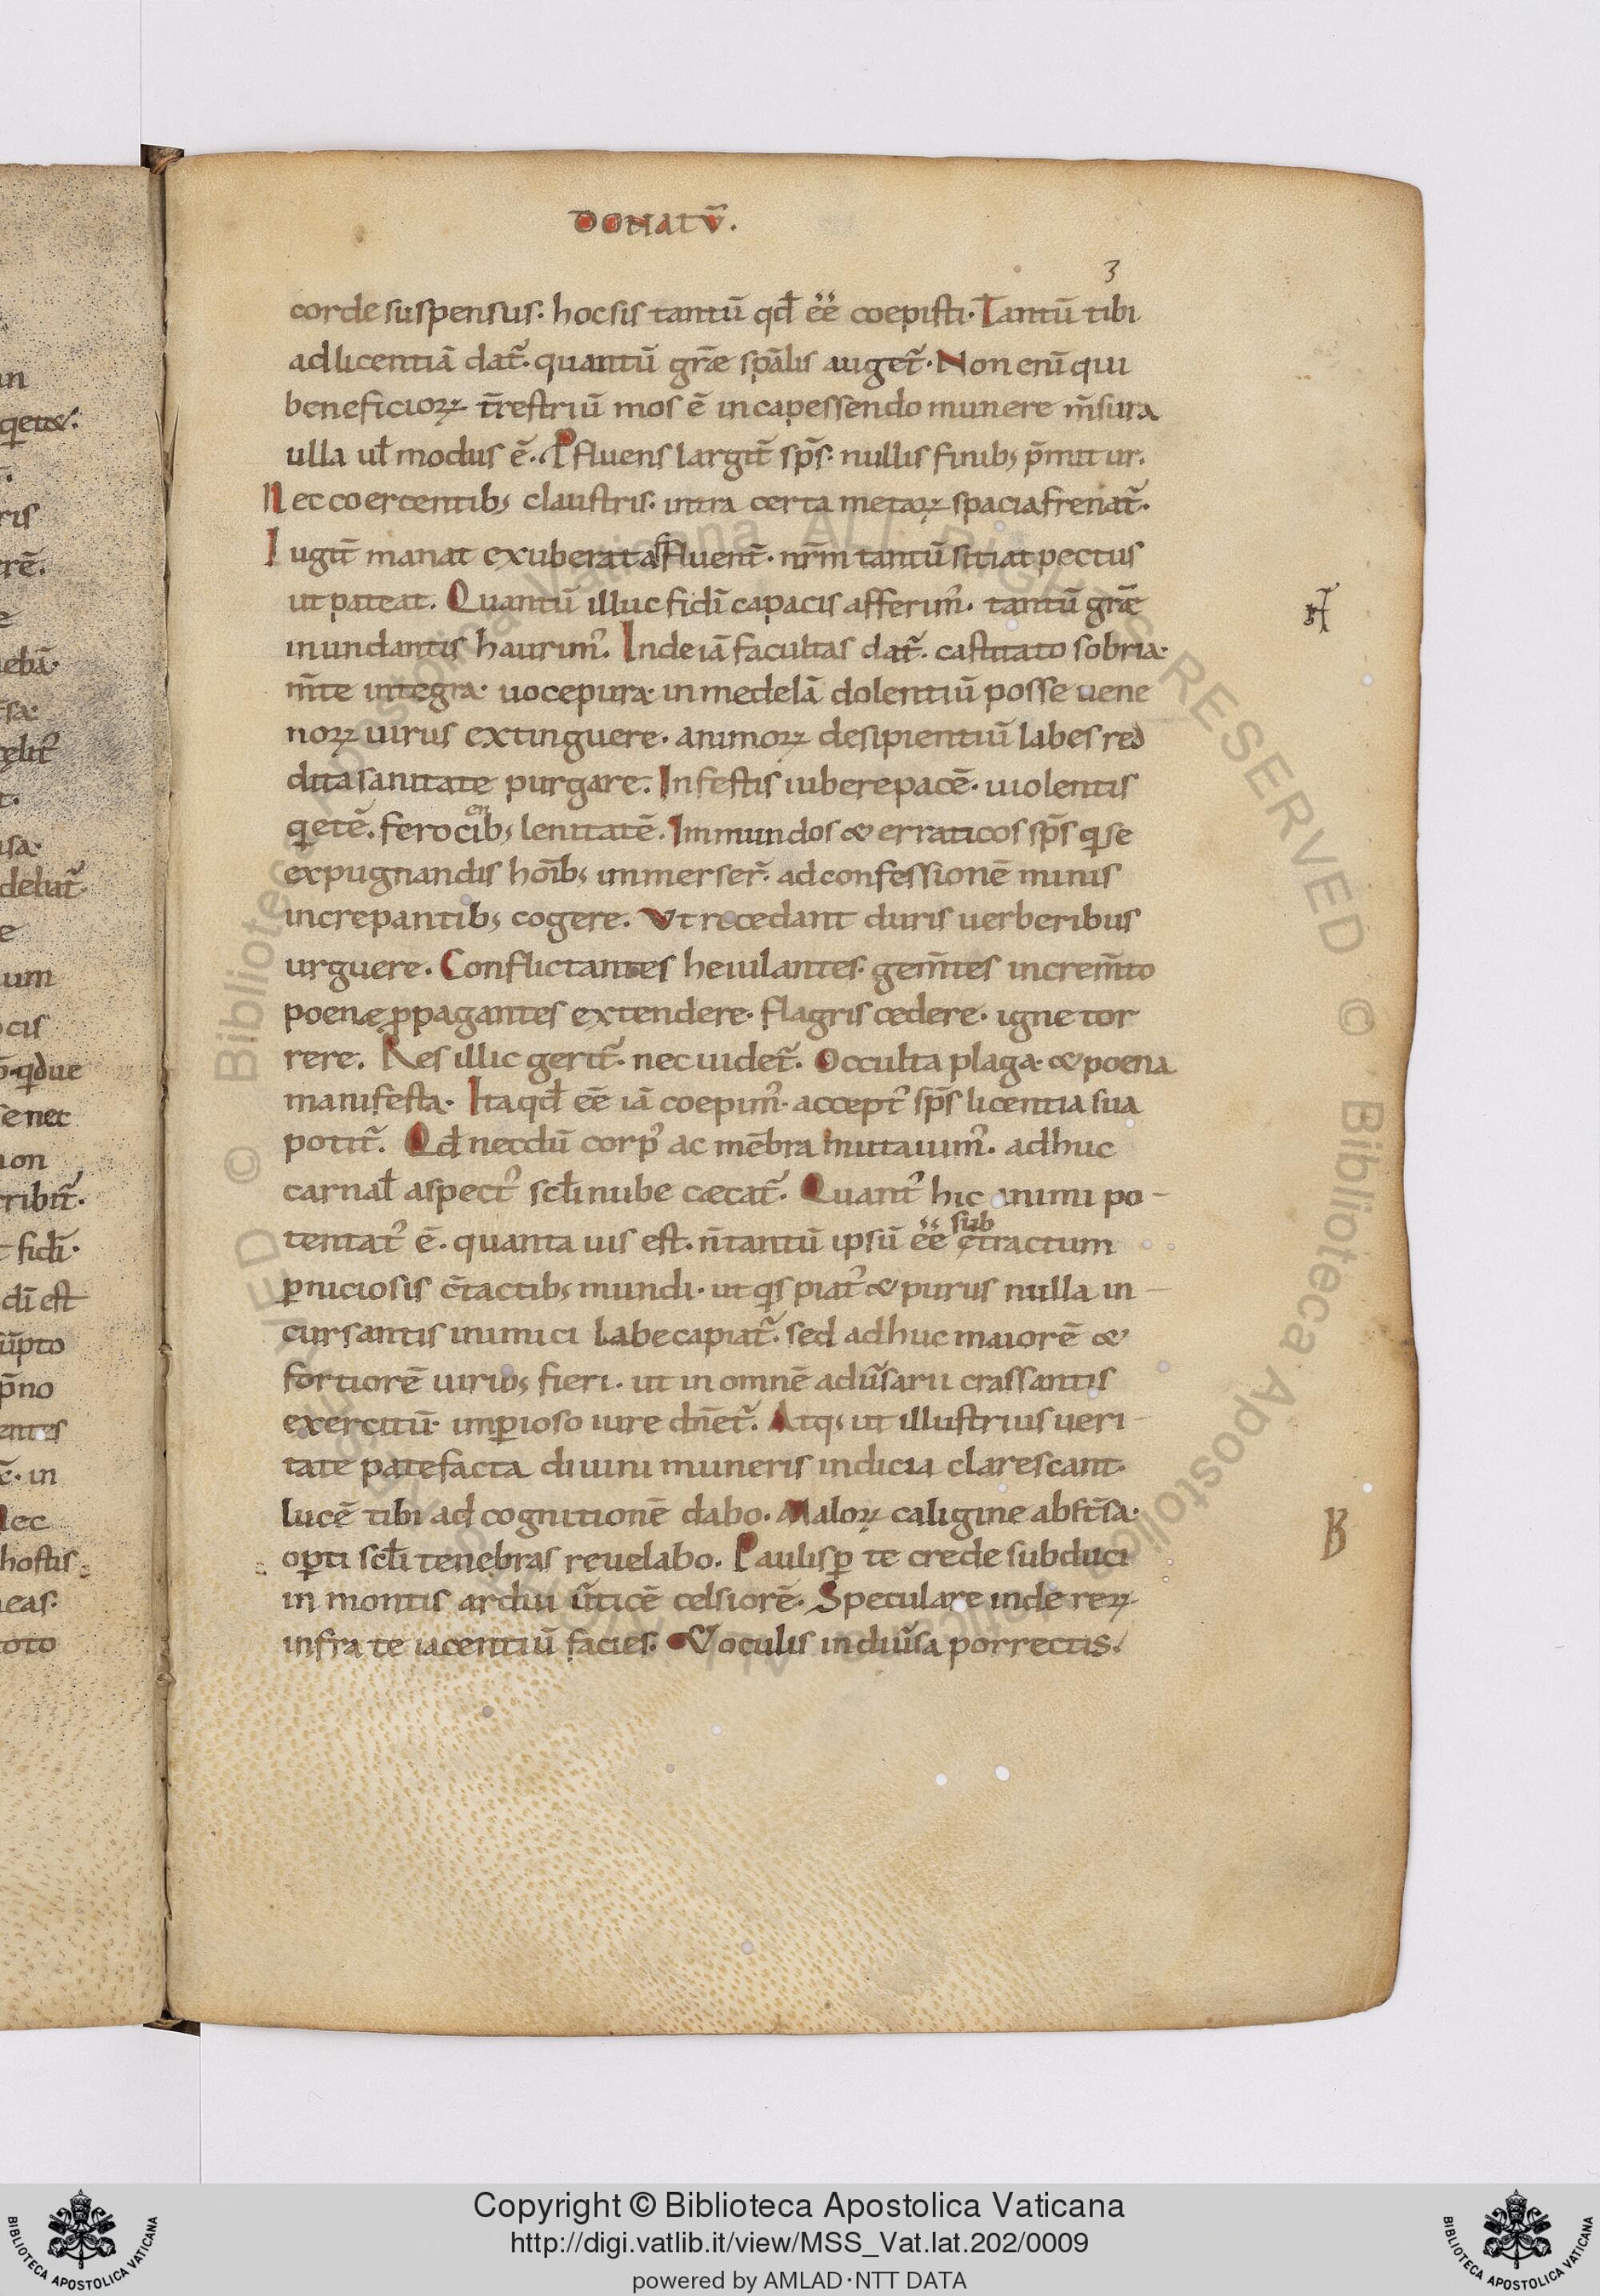 DONATŪ.
3
corde suspensus. hoc sis tantū qđ ēē coepisti. Tantū tibi
ad licentiā dat̃. quantū grãe spãlis auget̃. Non enī qui
beneficioꝝ t̃restriū mos ē in capessendo munere m̃sura
ulla uł modus ē. Ꝓfluens largit̃ sp̃s. nullis finib; p̃mitur.
Nec coercentib; claustris. intra certa metaꝝ spacia frenat̃.
Iugit̃ manat exuberat affluent̃. nr̃m tantū sitiat pectus
ut pateat. Quantū illuc fidī capacis afferim᷒. tantū grãe
inundantis haurim᷒. Inde iā facultas dat̃. castitato sobria.
m̃te integra. uoce pura. in medelā dolentiū posse uene
noꝝ uirus extinguere. animoꝝ desipientiū labes red
dita sanitate purgare. Infestis iubere pacē. uiolentis
q̇etē. ferocib; lenitatē. Immundos & erraticos sp̃s q̇ se
en
expugnandis hoīb; immerser̃. ad confessionē minis
increpantib; cogere. Vt recedant duris uerberibus
urguere. Conflictantes heiulantes. gem̃tes increm̃to
poenę ꝓpagantes extendere. flagris cedere. igne tor
rere. Res illic gerit̃. nec uidet̃. Occulta plaga. & poena
manifesta. Ita qđ ēē iā coepim᷒. accept᷒ sp̃s licentia sua
potit̃. Qđ necdū corp᷒ ac mēbra mutauim᷒. adhuc
carnał aspect᷒ scłi nube cæcat̃. Quant᷒ hic animi po-
tentat᷒ ē. quanta uis est. ñ tantū ipsū ēē ꝯtractum
sub
ꝑniciosis c̃tactib; mundi. ut q̇s piat᷒ & purus nulla in-
cursantis inimici labe capiat̃. sed adhuc maiorē &
fortiorē uirib; fieri. ut in omnē adũsarii crassantis
exercitū. imꝑioso iure dñet̃. Atq; ut illustrius ueri-
tate patefacta diuini muneris indicia clarescant.
lucē tibi ad cognitionē dabo. Maloꝝ caligine abst̃sa.
oꝑti scłi tenebras reuelabo. Paulisꝑ te crede subduci
in montis ardui ũticē celsiorē. Speculare inde reꝝ
infra te iacentiū facies. & oculis in diũsa porrectis.
Copyright © Biblioteca Apostolica Vaticana
http://digi.vatlib.it/view/MSS_Vat.lat.202/0009
powered by AMLAD·NTT DATA